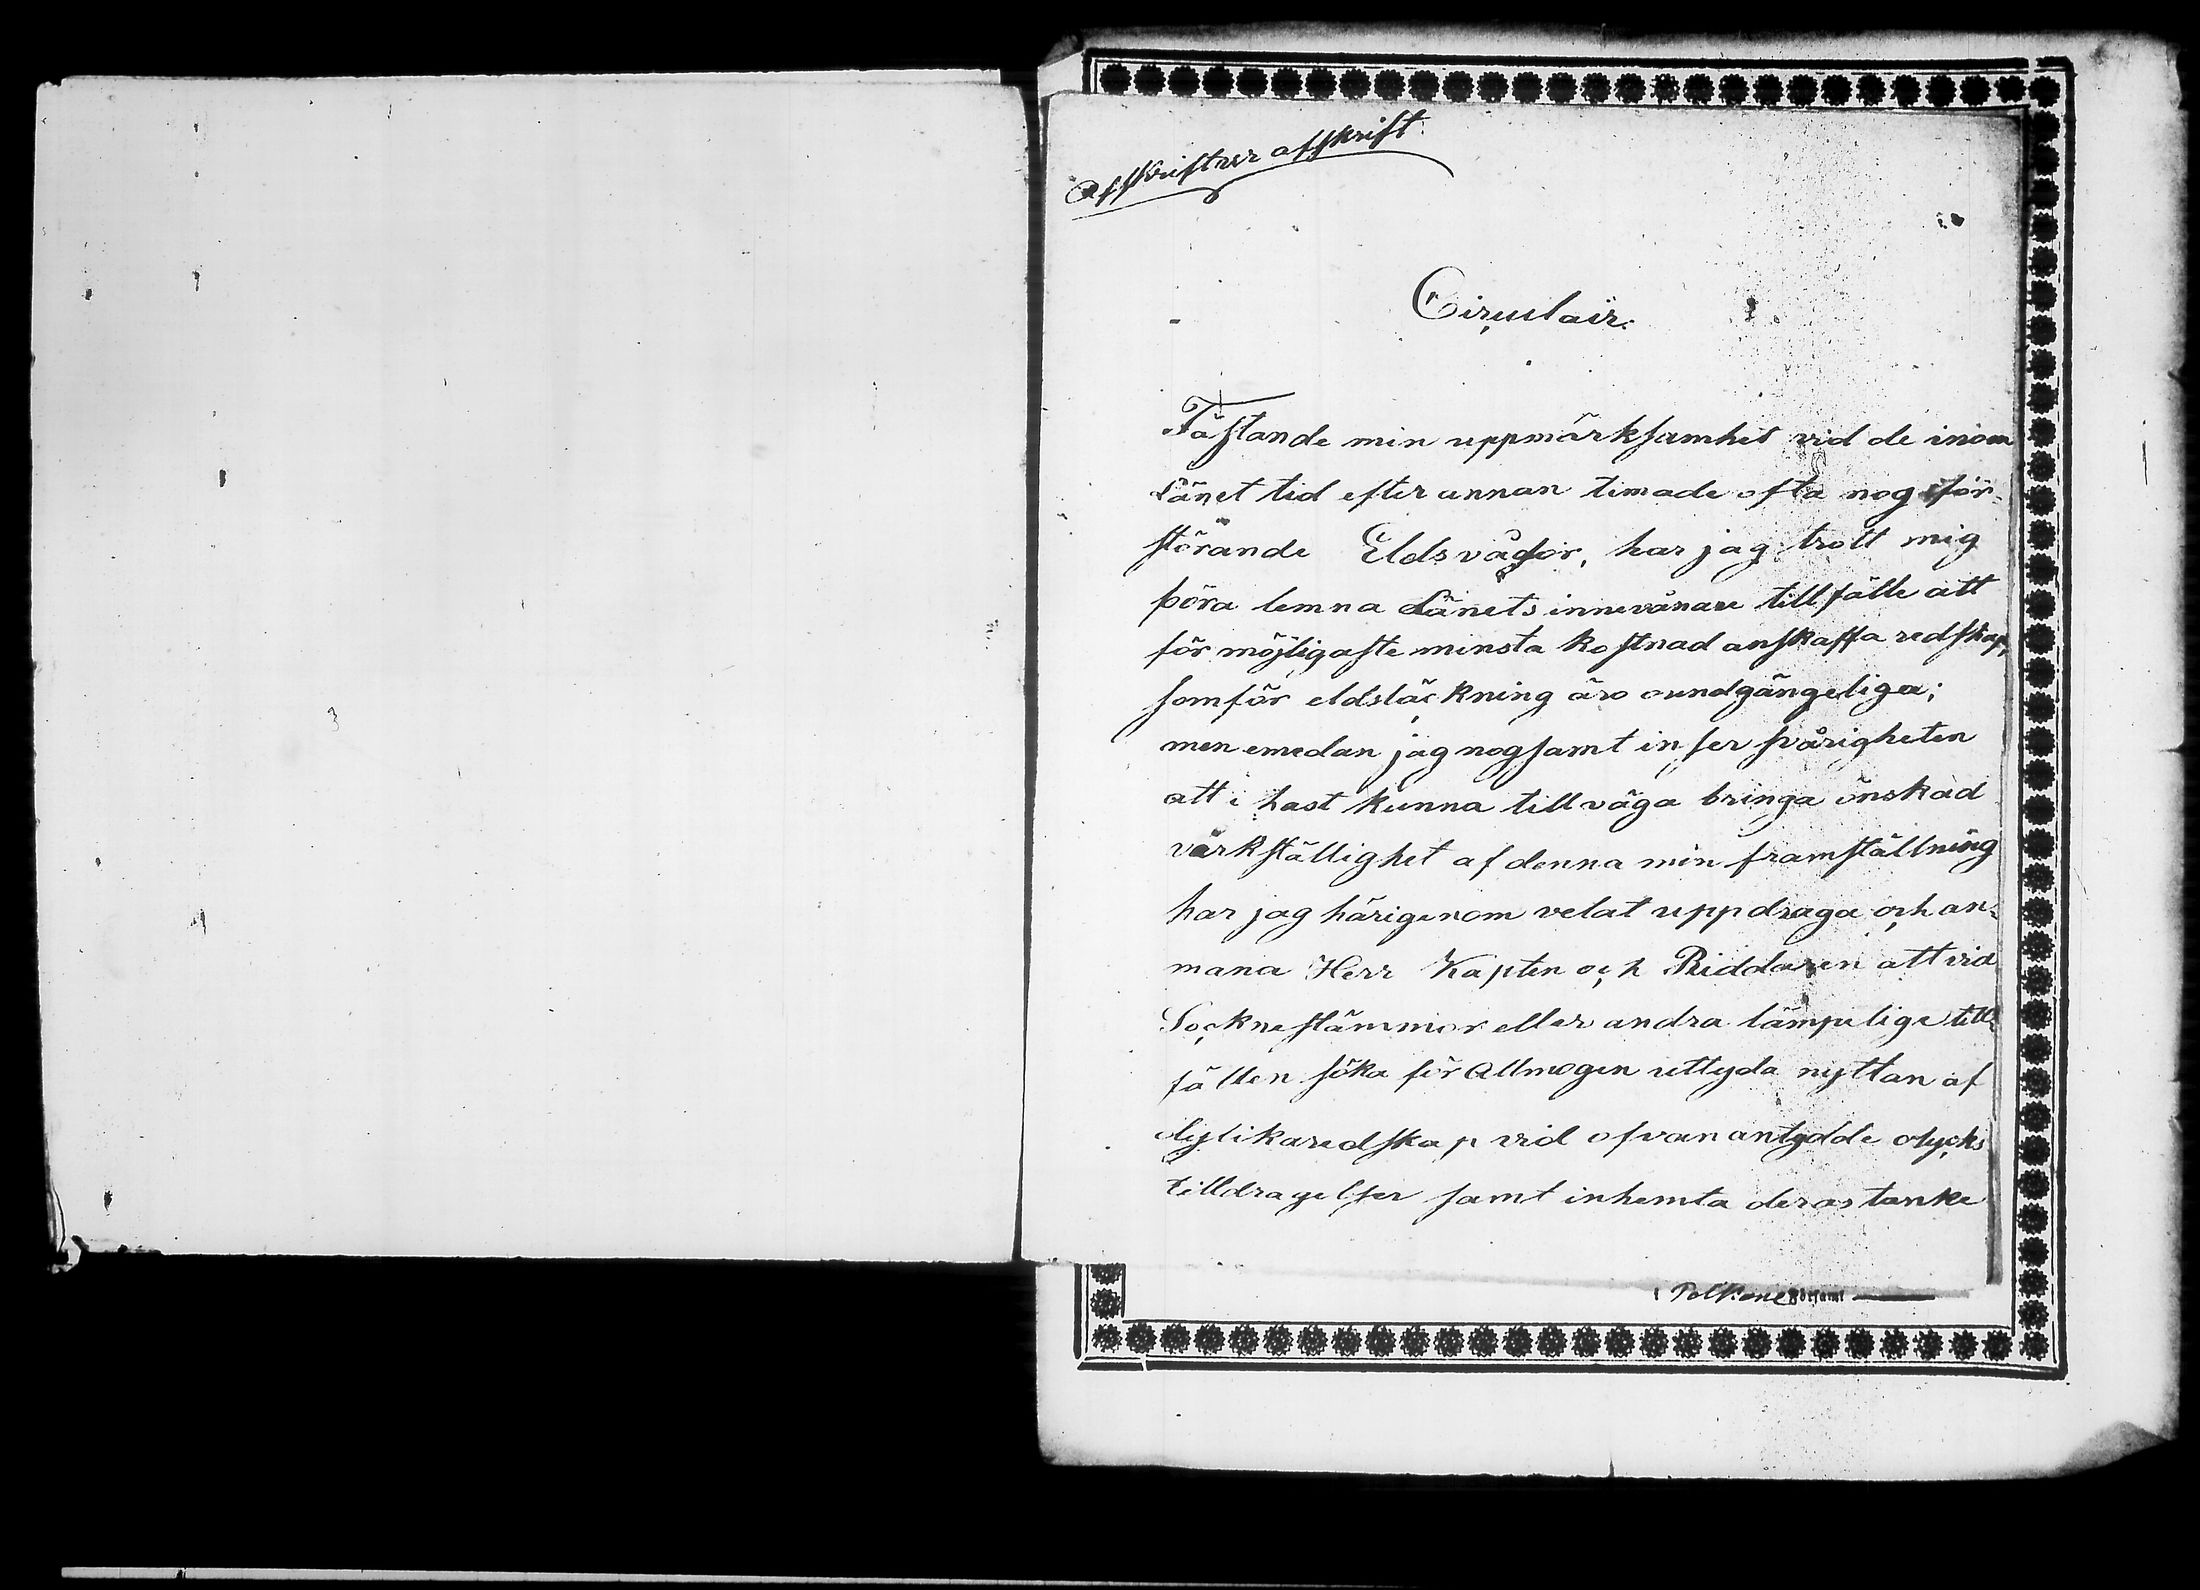 Affskriftner affskrift.
Circulair.
Fästande min uppmärksamhet vid de inom
Länet tid efter annan timade ofta nog för-
störande Eldsvådor, har jag trott mig
böra lemna Länets innevånare tillfälle att
för möjligaste minsta kostnad anskaffa redskap,
som för eldsläckning äro oundgängeliga;
men emedan jag nogsamt inser svårigheten
att i hast kunna tillväga bringa önskad
värkställighet af denna min framställning
har jag härigenom velat uppdraga och an-
mana Herr Kapten och Riddaren att vid
Sockneflämmor eller andra lämpelige till-
fällen söka för Allmogen uttyda nyttan af
dylika redskap vid ofvanantydde olycks
tilldragelser samt inhemta deras tanke